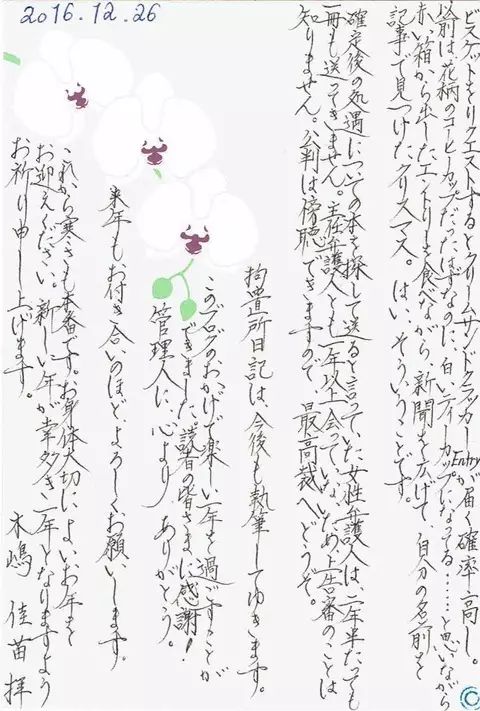 2016.12.26
ビスケットをリクエストするとクリームサンドクラッカーEntryが届く確率高し。
以前は花柄のコーヒーカップだったはずなのに、白いティーカップになってる……と思いながら
赤い箱から出したエントリーを食べながら、新聞を広げて、自分の名前を
記事で見つけたクリスマス。はい、そういうことです。
確定後の処遇についての本を探して送ると言っていた女性弁護人は二年半たっても
一冊も送ってきません。主任弁護人とも一年以上会っていないため、上告審のことは
知りません。公判は傍聴できますので、最高裁へどうぞ。
拘置所日記は、今後も執筆してゆきます。
このブログのおかげで楽しい一年を過ごすことが
できました。読者の皆さまに感謝!
管理人に、心より ありがとう。
来年もお付き合いのほど、よろしくお願いします。
これから寒さも本番です。お身体大切に、よいお年を
お迎えください。新しい年が幸多き一年となりますよう
お祈り申し上げます。
木嶋 佳苗 拝
©